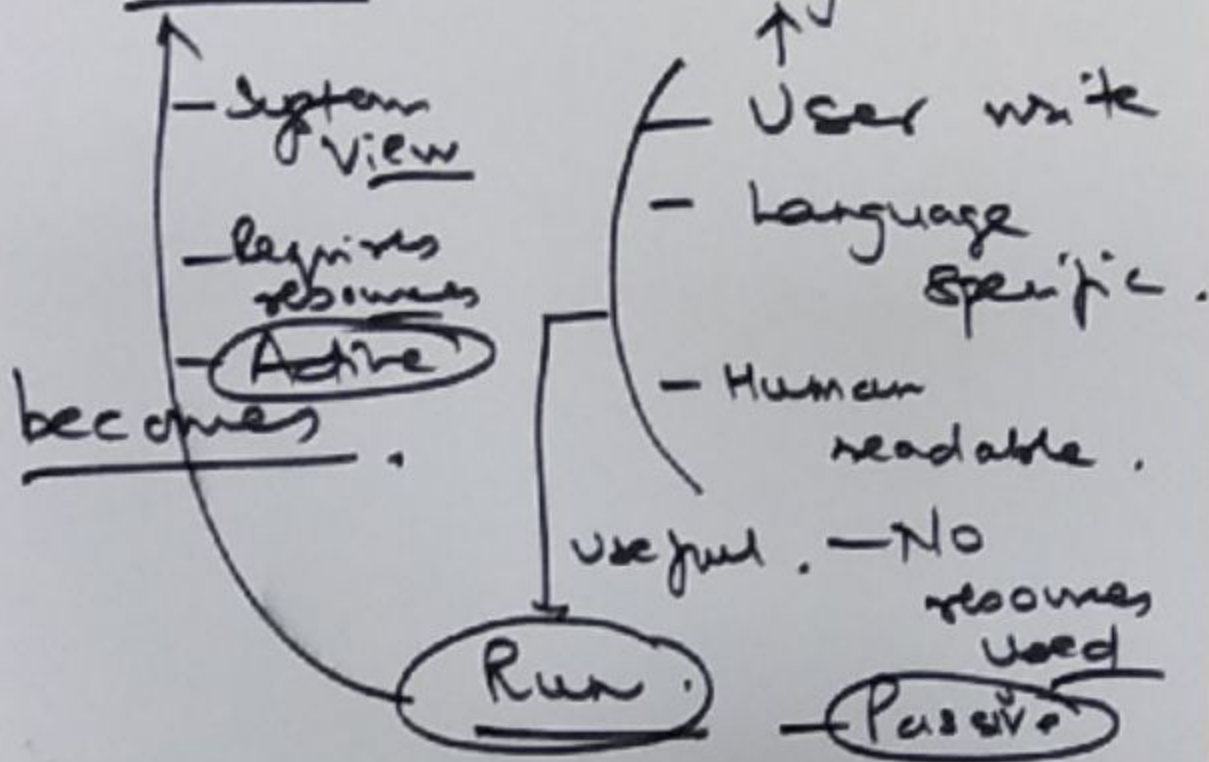 - System
view
- Requires
resources
- Active
becomes .
- User write
- Language
specific .
- Human
readable .
useful . - No
resources
used
Run .
- Passive